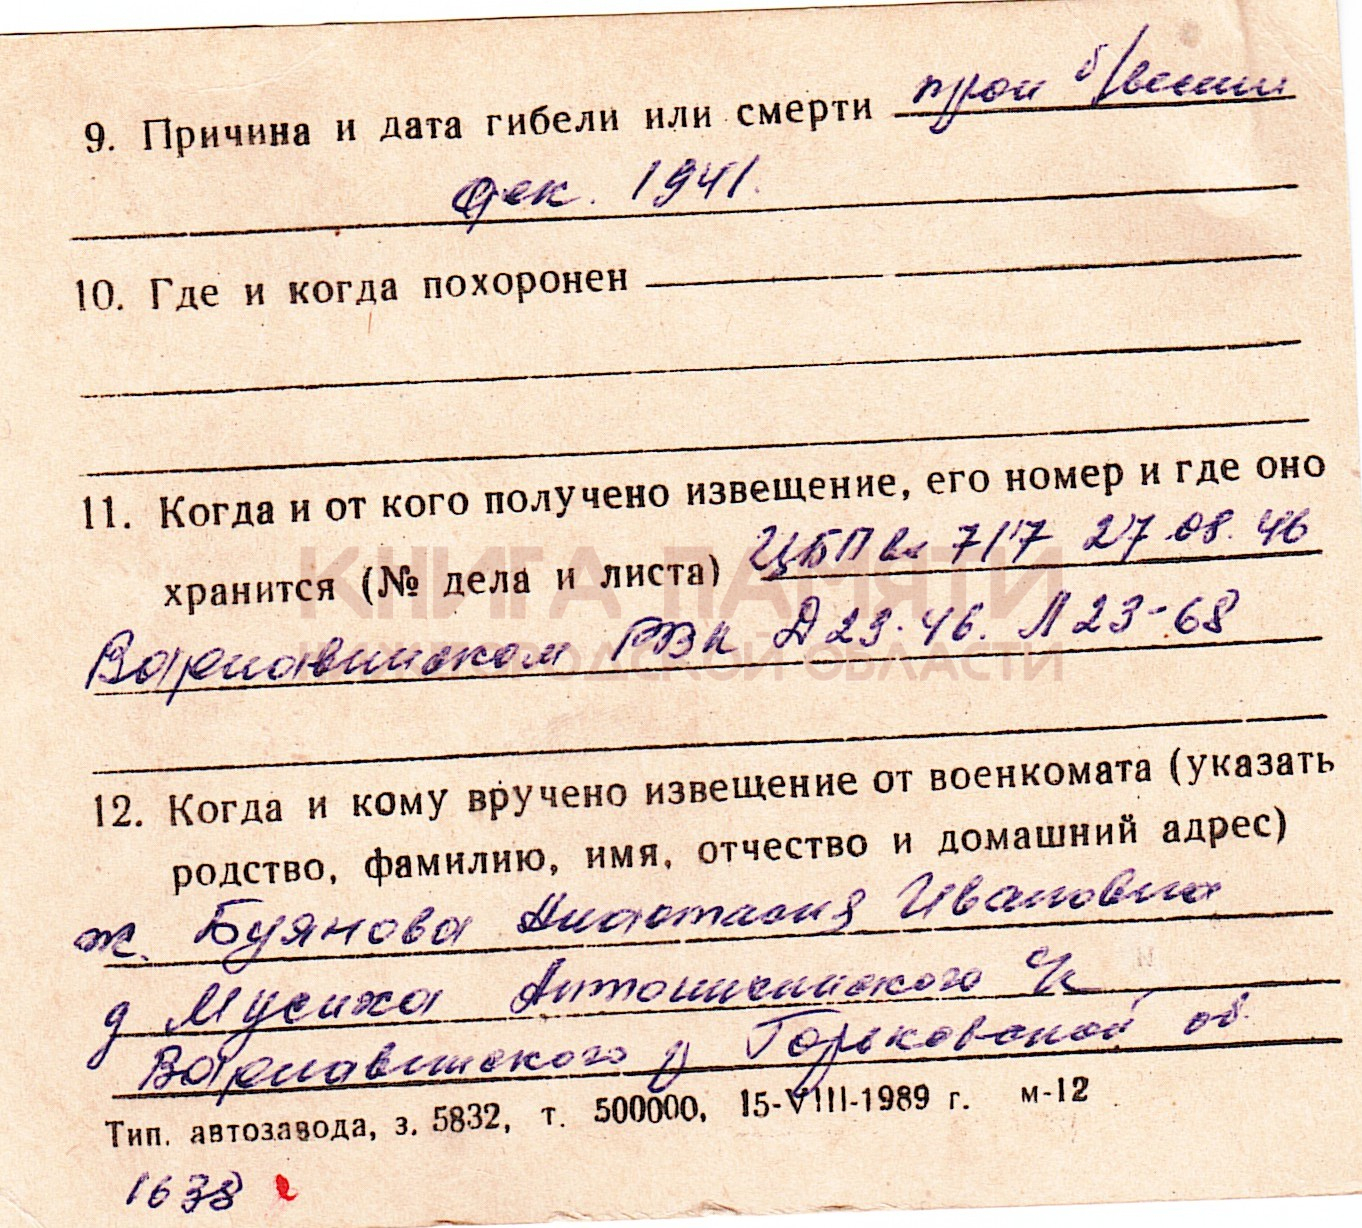 9. Причина и дата гибели или смерти проп б/вести
дек. 1941.
10. Где и когда похоронен
11. Когда и от кого получено извещение, его номер и где оно
хранится (№ дела и листа) ЦБП 717 27.08.46
КНИГА ПАМЯТИ
Варнавинском РВК Д 23.46. Л 23-68
НИЖЕГОРОДСКОЙ ОБЛАСТИ
12. Когда и кому вручено извещение от военкомата (указать
родство, фамилию, имя, отчество и домашний адрес)
ж. Буянова Анастасия Ивановна
д Мусиха Антонихинского с/с
Варнавинского р Горьковской об.
Тип. автозавода, з. 5832, т. 500000, 15-VIII-1989 г. м-12
1638